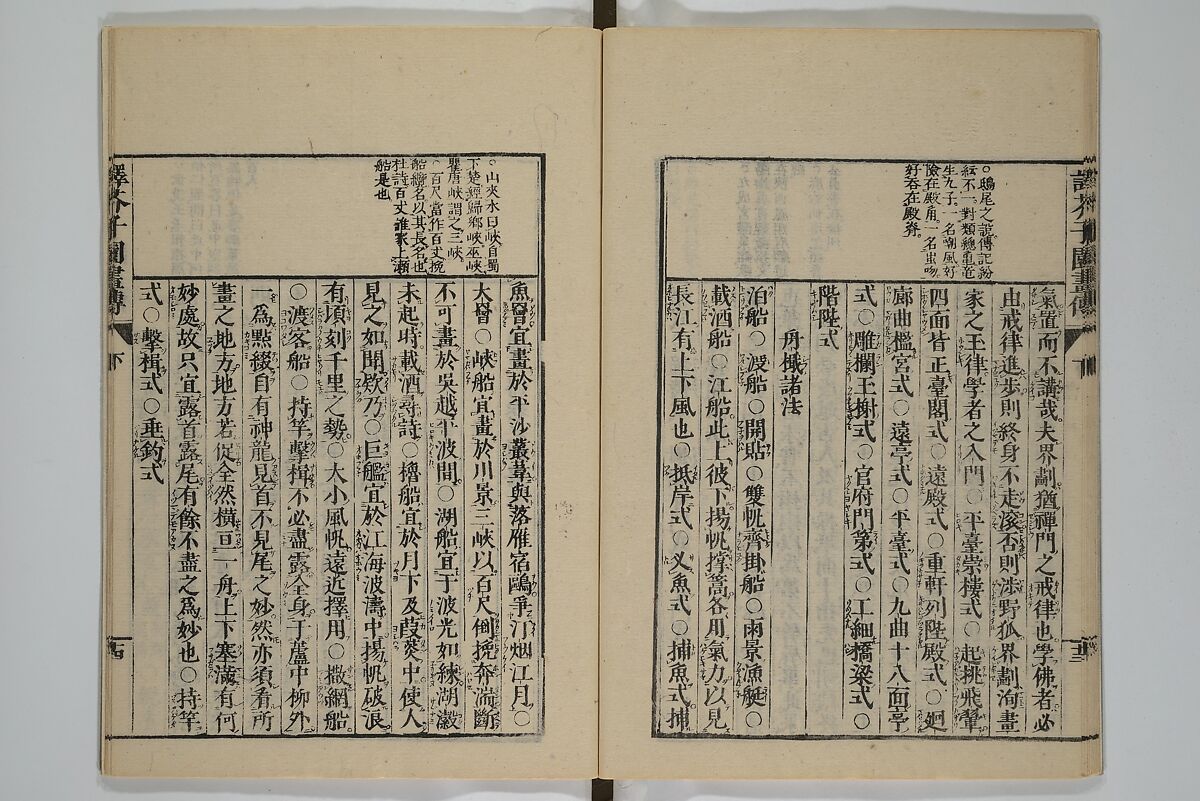 譯芥子園畫傳
下
十三
○鴟尾之說傳記紛
紜不一對類總龜龍
生九子。一名嘲風好
險在殿角。一名蚩吻
好吞在殿脊。
氣置而不講哉夫界劃猶禪門之戒律也學佛者必
由戒律進步則終身不走滾否則涉野狐界劃洵畫
家之玉律學者之入門○平臺崇樓式○起挑飛簷
四面皆正臺閣式○遠殿式○重軒列陛殿式○廻
廊曲檻宮式○遠亭式○平臺式○九曲十八面亭
式○雕欄玉榭式○官府門第式○工細橋梁式○
階陛式
舟檝諸法
泊船○渡船○開船○雙帆齊掛船○雨景漁艇○
載酒船○江船此上彼下揚帆撑篙各用氣力以見
長江有上下風也○抵岸式○义魚式○捕魚式捕
○山夾水曰峽自蜀
下楚經歸鄉峽巫峽
瞿唐峽謂之三峽。
○百尺當作百丈挽
船纜名以其長名也
杜詩百丈誰家上瀨
船是也
魚罾宜畫於平沙叢葦與落雁宿鷗爭汀烟江月○
大罾○峽船宜畫於川景三峽以百尺倒挽奔湍斷
不可畫於吳越平波間○湖船宜于波光如練湖瀲
未起時載酒尋詩○櫓船宜於月下及葭葵中使人
見之如聞欸乃○巨艦宜於江海波濤中揚帆破浪
有頃刻千里之勢○大小風帆遠近擇用○撒網船
○渡客船○持竿擊楫不必盡露全身于蘆中柳外
一爲點綴自有神龍見首不見尾之妙然亦須看所
畫之地方地方若促全然橫亘一舟上下塞滿有何
妙處故只宜露首露尾有餘不盡之爲妙也○持竿
式○擊楫式○垂釣式
譯芥子園畫傳
下
十四